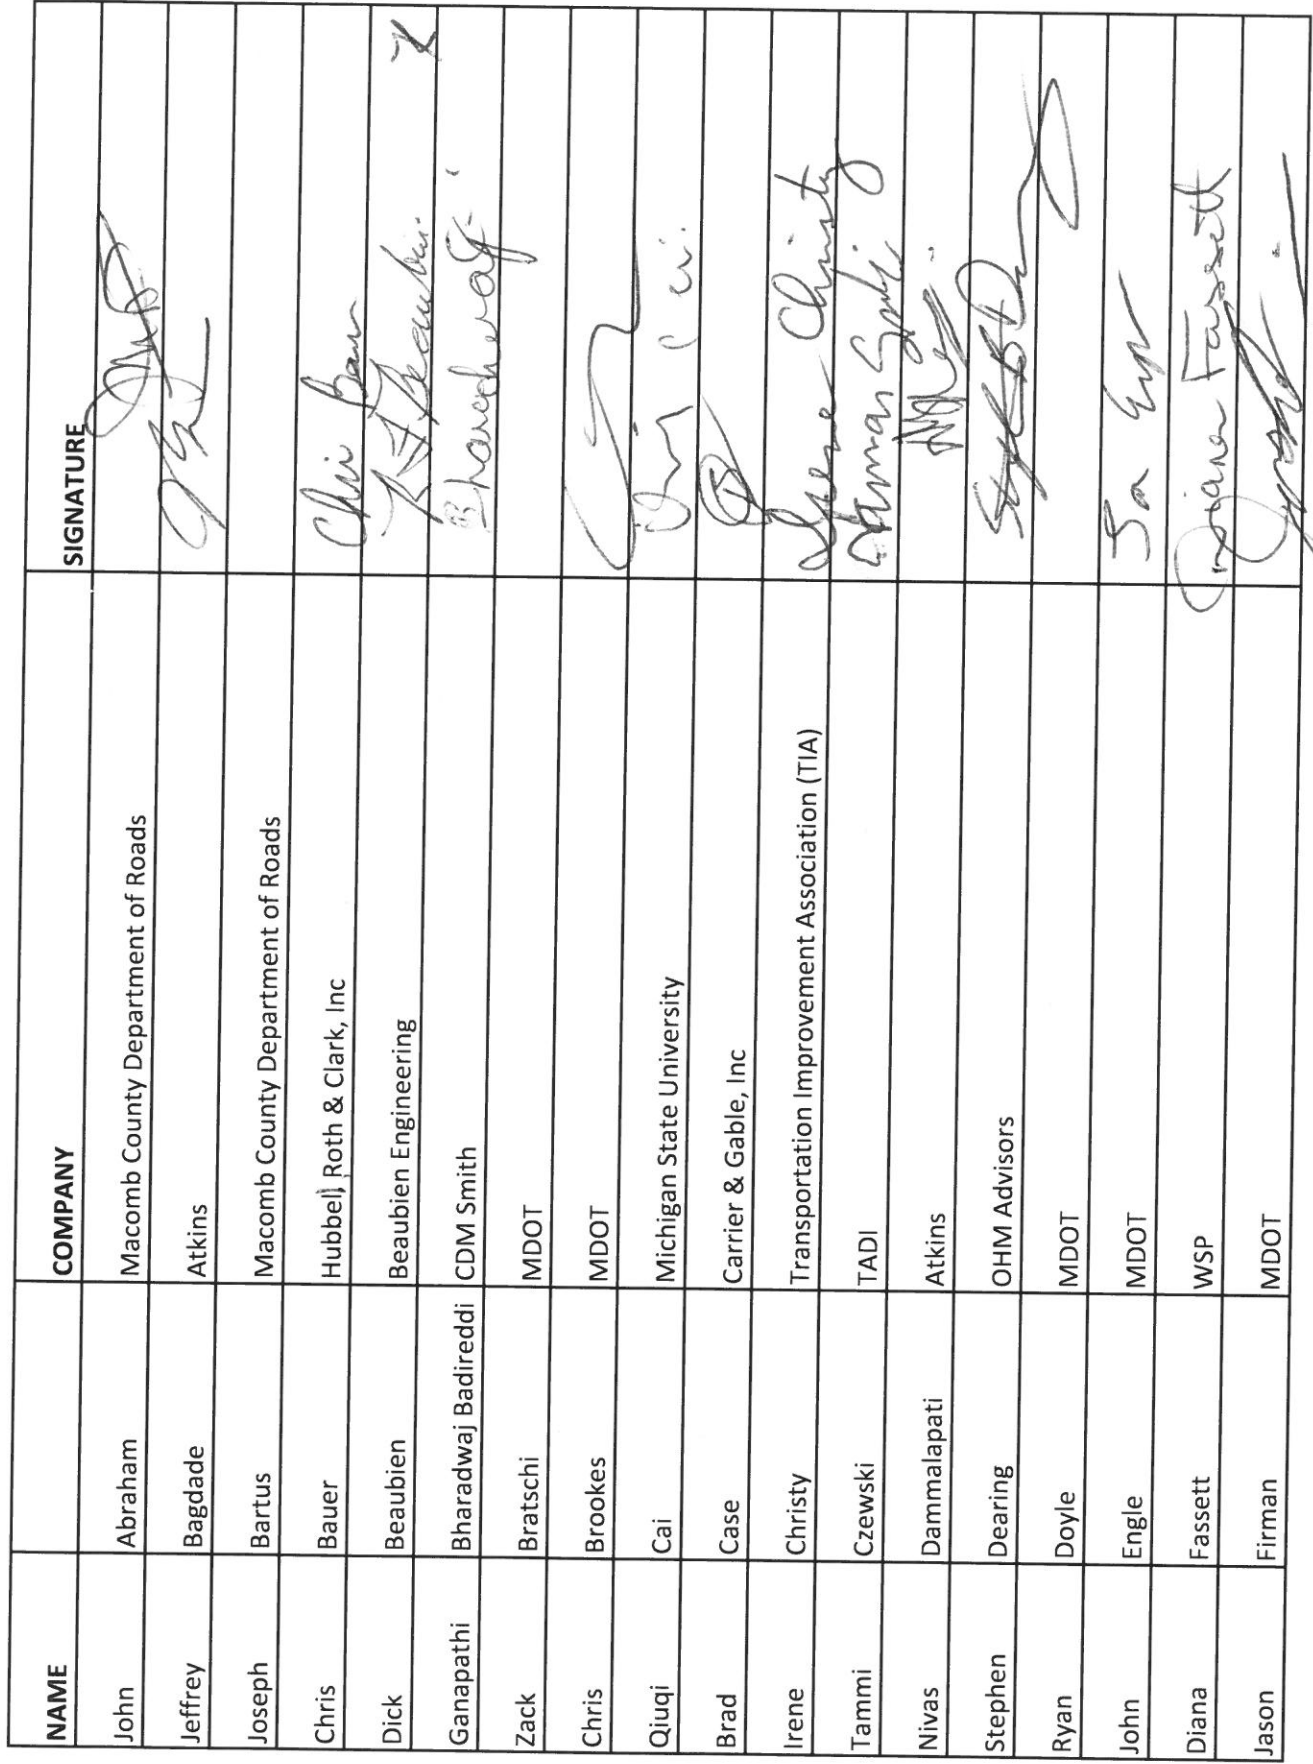 NAME COMPANY SIGNATURE
John Abraham Macomb County Department of Roads
Jeffrey Bagdade Atkins
Joseph Bartus Macomb County Department of Roads
Chris Bauer Hubbell, Roth & Clark, Inc Chris Bauer
Dick Beaubien Beaubien Engineering Beaubien
Ganapathi Bharadwaj Badireddi CDM Smith Bharadwaj
Zack Bratschi MDOT
Chris Brookes MDOT
Qiuqi Cai Michigan State University Cai
Brad Case Carrier & Gable, Inc
Irene Christy Transportation Improvement Association (TIA) Irene Christy
Tammi Czewski TADI
Nivas Dammalapati Atkins
Stephen Dearing OHM Advisors
Ryan Doyle MDOT
John Engle MDOT
Diana Fassett WSP Diana Fassett
Jason Firman MDOT